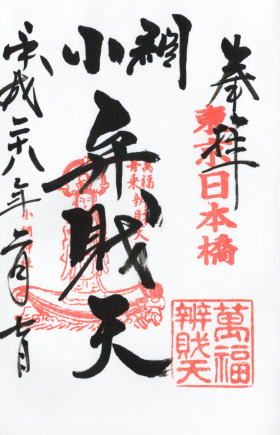 奉拝
東京日本橋
小網
弁財天
萬福
舟乗弁財天
萬福
辨財天
平成二十八年一月七日